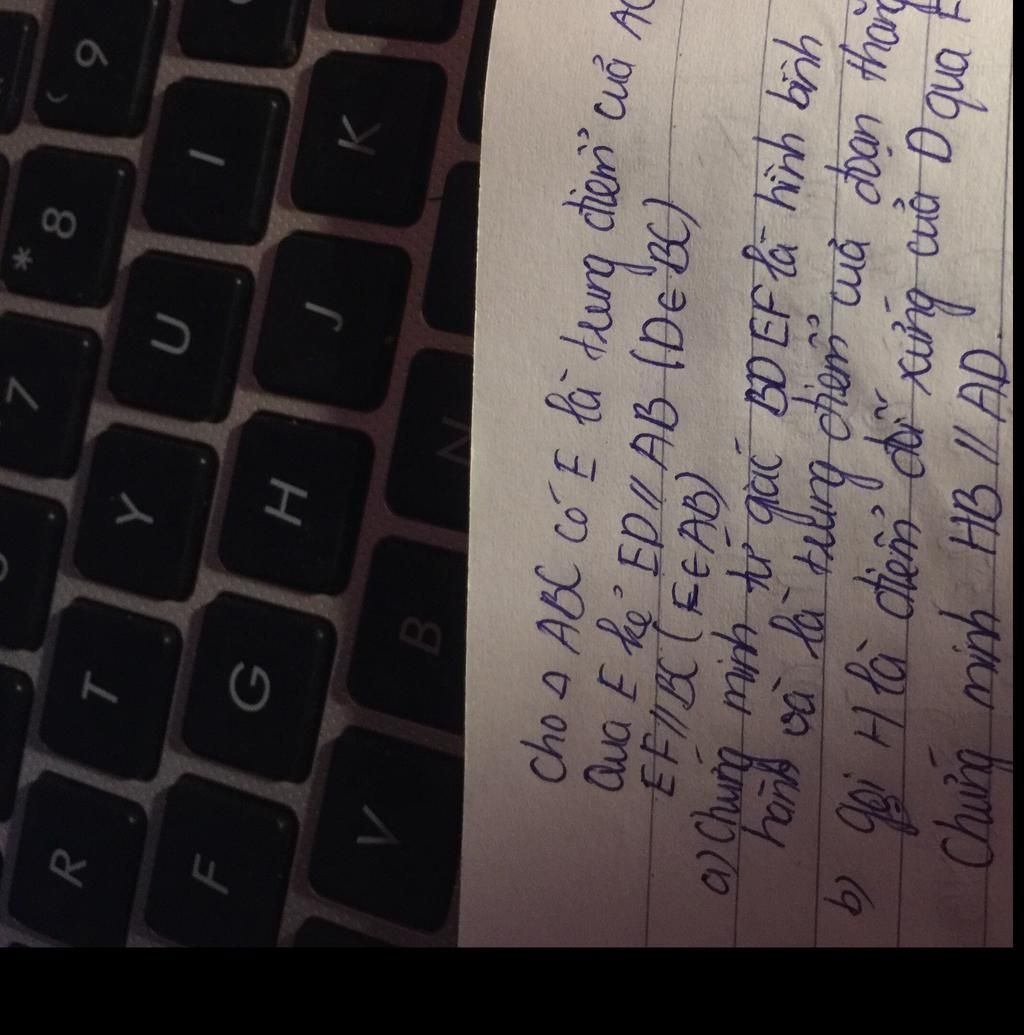 Cho Δ ABC có E là trung điểm của AC
Qua E kẻ ED // AB (D ∈ BC)
EF // BC (F ∈ AB)
a) Chứng minh tứ giác BDEF là hình bình
hành và là trung điểm của đoạn thẳng
b) gọi H là điểm đối xứng của D qua F
Chứng minh HB // AD.
( 9
* 8
7
I
K
U
J
Y
H
N
T
G
B
R
F
V